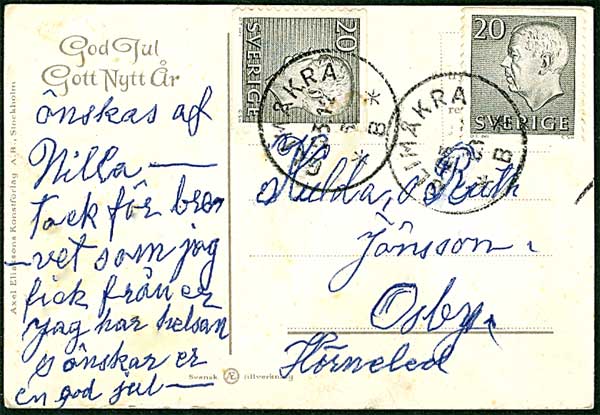 God Jul
Gott Nytt År
önskas af
Nilla —
tack för bre-
-vet som jag
fick från er
jag har helsan
o önskar er
en god jul —
Axel Eliassons Konstförlag A.B., Stockholm
Svensk Æ tillverkning
20
SVERIGE
20
SVERIGE
GLIMÅKRA
* B *
GLIMÅKRA
* B *
Hulda, o Ruth
Jönsson.
Osby
Hörneled